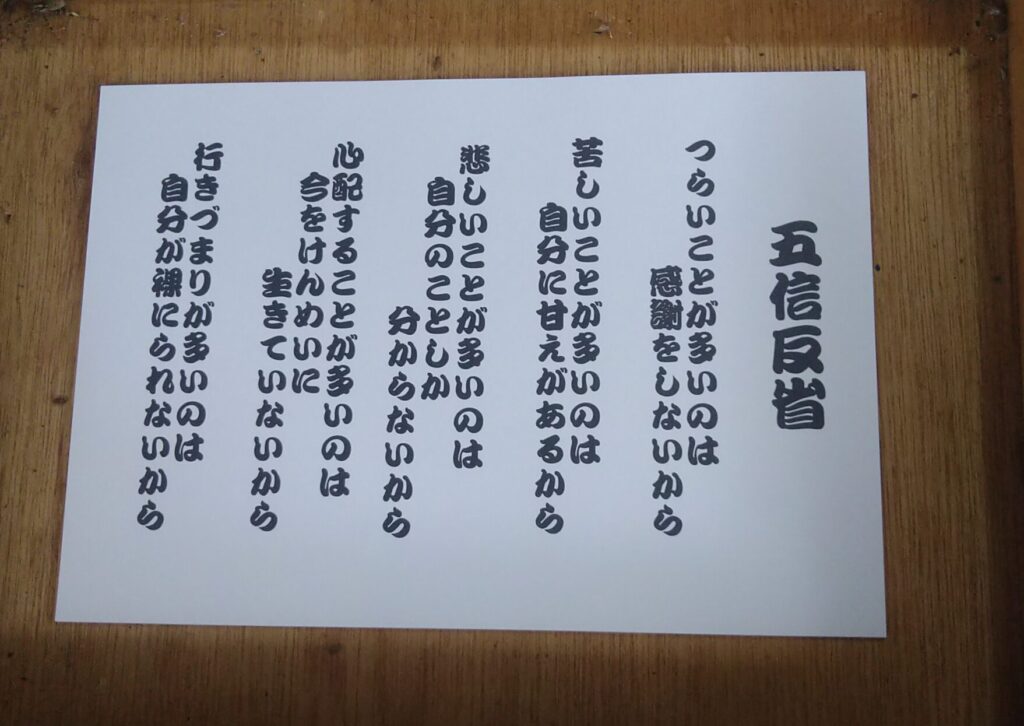 五信反省
つらいことが多いのは
感謝をしないから
苦しいことが多いのは
自分に甘えがあるから
悲しいことが多いのは
自分のことしか
分からないから
心配することが多いのは
今をけんめいに
生きていないから
行きづまりが多いのは
自分が裸にられないから